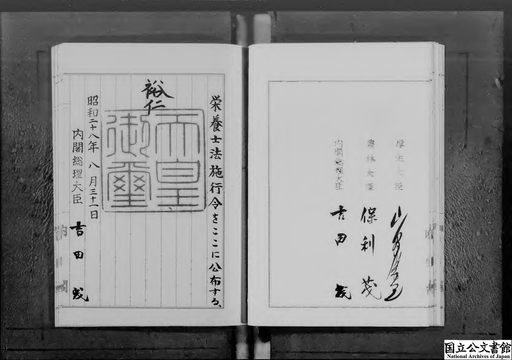 栄養士法施行令をここに公布する。
裕仁
天皇御璽
昭和二十八年八月三十一日
内閣総理大臣
吉田茂
厚生大臣
農林大臣
保利茂
内閣総理大臣
吉田茂
国立公文書館
National Archives of Japan